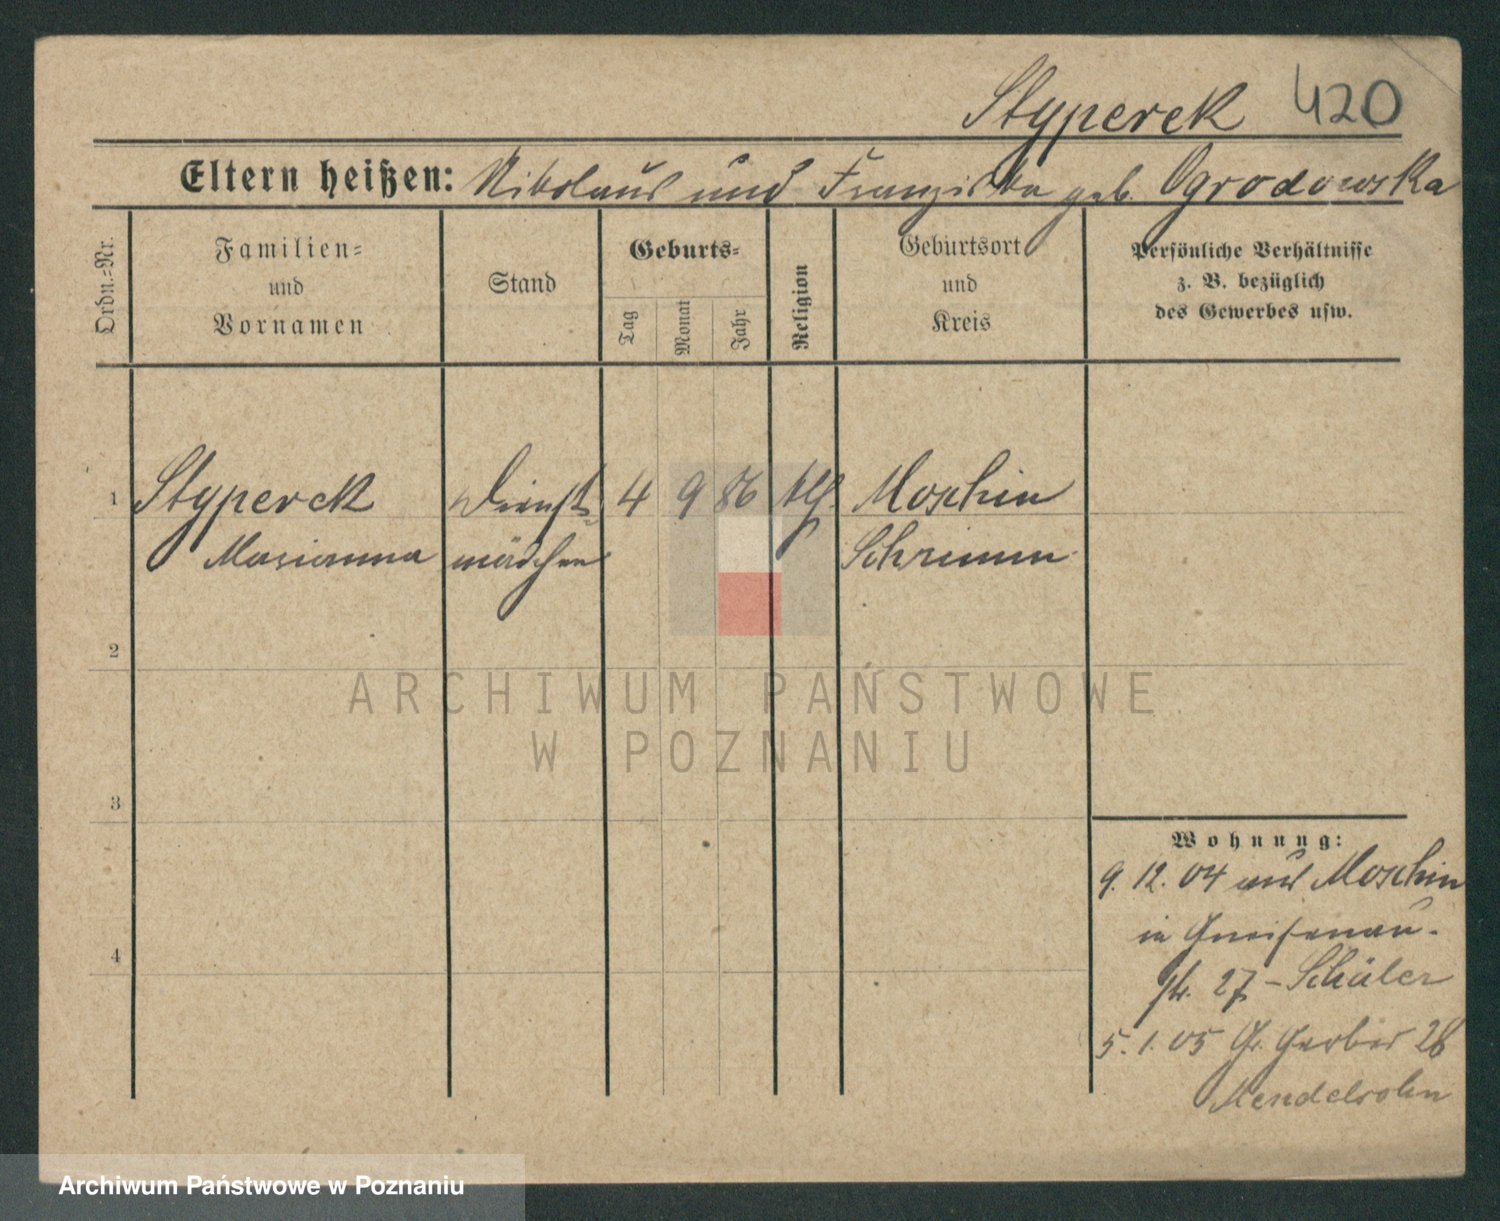 Styperek 420
Eltern heißen: Nikolaus und Franziska geb. Ogrodowska
Ordn.-Nr.
Familien-
und
Vornamen
Stand
Geburts-
Tag
Monat
Jahr
Religion
Geburtsort
und
Kreis
Persönliche Verhältnisse
z. B. bezüglich
des Gewerbes usw.
1 Styperek Dienst- 4 9 86 Moschin
Marianna mädchen Schrimm
2
3
4
Wohnung:
9. 12. 04 aus Moschin
in Gneisenau-
str. 27 - Schüler
5. 1. 05 Gr. Gerber 28
Mendelsohn
ARCHIWUM PAŃSTWOWE
W POZNANIU
Archiwum Państwowe w Poznaniu